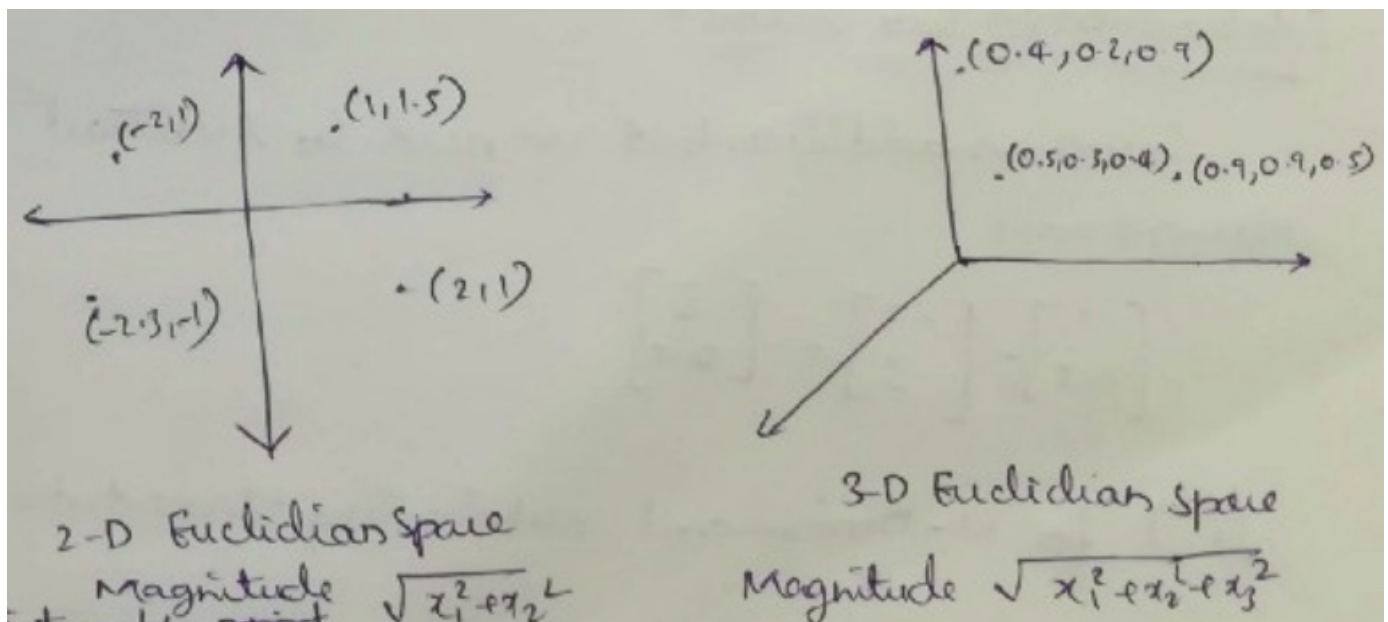 (-2,1)
(1,1.5)
(-2.3,-1)
(2,1)
2-D Euclidian Space
Magnitude √x₁²+x₂²
(0.4,0.2,0.9)
(0.5,0.3,0.4)
(0.9,0.9,0.5)
3-D Euclidian Space
Magnitude √x₁²+x₂²+x₃²
point